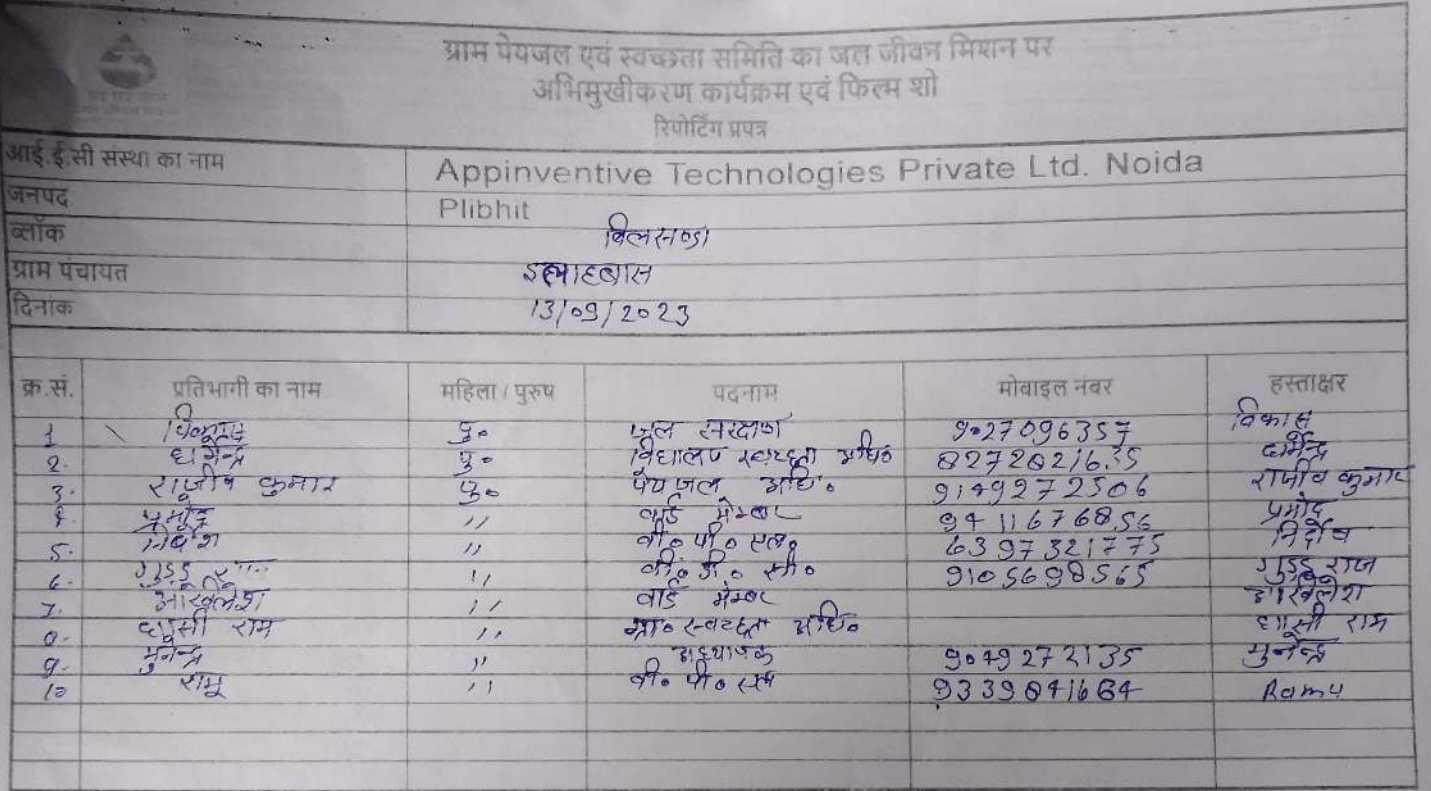 ग्राम पेयजल एवं स्वच्छता समिति का जल जीवन मिशन पर
अभिमुखीकरण कार्यक्रम एवं फिल्म शो
रिपोर्टिंग प्रपत्र
आई.ई.सी संस्था का नाम Appinventive Technologies Private Ltd. Noida
जनपद Plibhit
ब्लॉक बिलसण्डा
ग्राम पंचायत
दिनांक 13/09/2023
क्र.सं. प्रतिभागी का नाम महिला / पुरुष पदनाम मोबाइल नंबर हस्ताक्षर
1 पु० जल संरक्षण 9027096357 विकास
2. धर्मेन्द्र पु० विद्यालय स्वच्छता अधि० 8272821635 धर्मेन्द्र
3. राजीव कुमार पु० पेयजल अधि० 9149272506 राजीव कुमार
4. प्रमोद ,, वार्ड मेम्बर 9411676856 प्रमोद
5. ,, वी० पी० एल० 6397321775
6. गुड्डू ,, वी० डी० सी० 9105698565 गुड्डू राज
7. अखिलेश ,, वार्ड मेम्बर अखिलेश
8. राम ,, ग्रा० स्वच्छता अधि० राम
9. मुनेन्द्र ,, अध्यापक 9049272135 मुनेन्द्र
10 रामू ,, वी० पी० एल 9339841664 Ramu